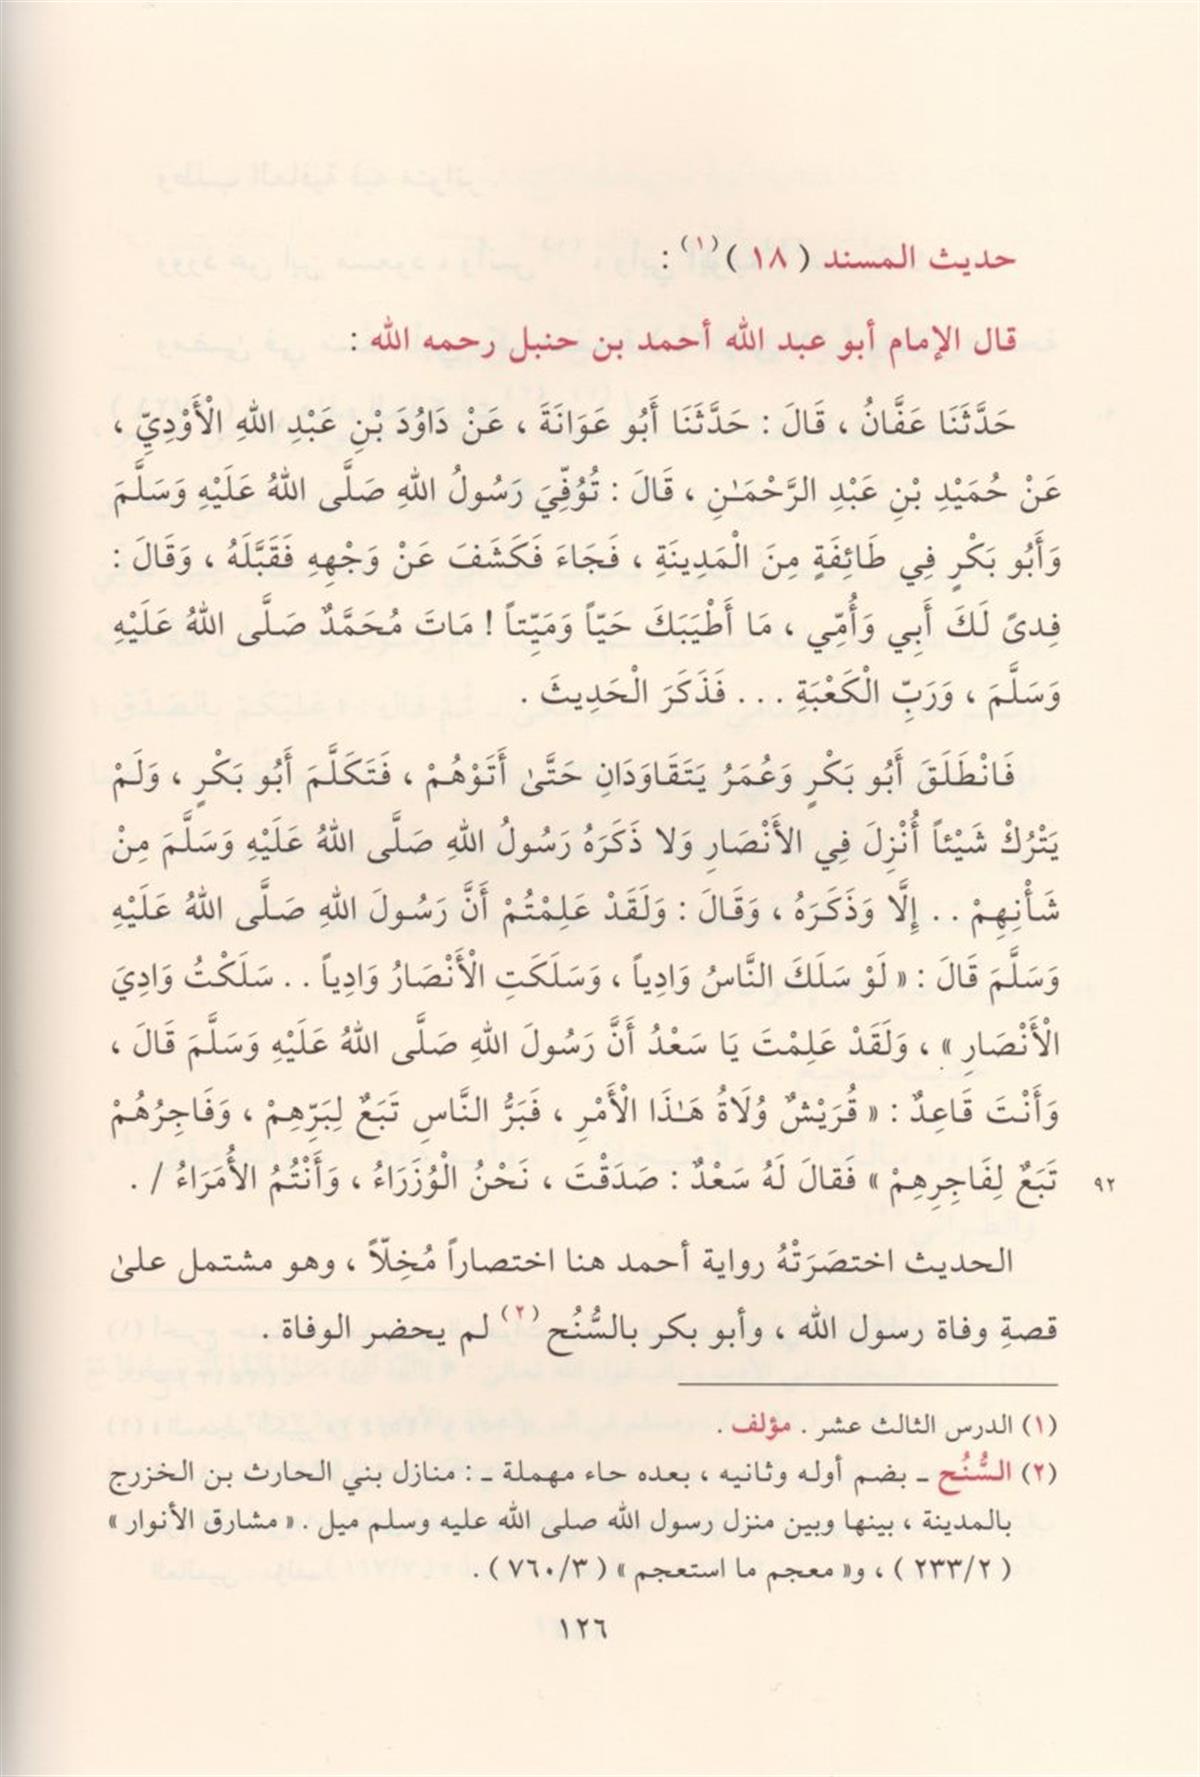 حديث المسند ( ١٨ )(١) :
قال الإمام أبو عبد الله أحمد بن حنبل رحمه الله :
حَدَّثَنَا عَفَّانُ ، قَالَ : حَدَّثَنَا أَبُو عَوَانَةَ ، عَنْ دَاوُدَ بْنِ عَبْدِ اللهِ الْأَوْدِيِّ ،
عَنْ حُمَيْدِ بْنِ عَبْدِ الرَّحْمَـٰنِ ، قَالَ : تُوُفِّيَ رَسُولُ اللهِ صَلَّى اللهُ عَلَيْهِ وَسَلَّمَ
وَأَبُو بَكْرٍ فِي طَائِفَةٍ مِنَ الْمَدِينَةِ ، فَجَاءَ فَكَشَفَ عَنْ وَجْهِهِ فَقَبَّلَهُ ، وَقَالَ :
فِدىً لَكَ أَبِي وَأُمِّي ، مَا أَطْيَبَكَ حَيّاً وَمَيِّتاً ! مَاتَ مُحَمَّدٌ صَلَّى اللهُ عَلَيْهِ
وَسَلَّمَ ، وَرَبِّ الْكَعْبَةِ . . . فَذَكَرَ الْحَدِيثَ .
فَانْطَلَقَ أَبُو بَكْرٍ وَعُمَرُ يَتَقَاوَدَانِ حَتَّىٰ أَتَوْهُمْ ، فَتَكَلَّمَ أَبُو بَكْرٍ ، وَلَمْ
يَتْرُكْ شَيْئاً أُنْزِلَ فِي الأَنْصَارِ وَلا ذَكَرَهُ رَسُولُ اللهِ صَلَّى اللهُ عَلَيْهِ وَسَلَّمَ مِنْ
شَأْنِهِمْ . . إِلَّا وَذَكَرَهُ ، وَقَالَ : وَلَقَدْ عَلِمْتُمْ أَنَّ رَسُولَ اللهِ صَلَّى اللهُ عَلَيْهِ
وَسَلَّمَ قَالَ : « لَوْ سَلَكَ النَّاسُ وَادِياً ، وَسَلَكَتِ الْأَنْصَارُ وَادِياً . . سَلَكْتُ وَادِيَ
الْأَنْصَارِ » ، وَلَقَدْ عَلِمْتَ يَا سَعْدُ أَنَّ رَسُولَ اللهِ صَلَّى اللهُ عَلَيْهِ وَسَلَّمَ قَالَ ،
وَأَنْتَ قَاعِدٌ : « قُرَيْشٌ وُلَاةُ هَـٰذَا الْأَمْرِ ، فَبَرُّ النَّاسِ تَبَعٌ لِبَرِّهِمْ ، وَفَاجِرُهُمْ
تَبَعٌ لِفَاجِرِهِمْ » فَقالَ لَهُ سَعْدٌ : صَدَقْتَ ، نَحْنُ الْوُزَرَاءُ ، وَأَنْتُمُ الأُمَرَاءُ / .
٩٢
الحديث اختصَرَتْهُ رواية أحمد هنا اختصاراً مُخِلّاً ، وهو مشتمل علىٰ
قصةِ وفاة رسول الله ، وأبو بكر بالسُّنُح(٢) لم يحضر الوفاة .
(١) الدرس الثالث عشر . مؤلف .
(٢) السُّنُح ـ بضم أوله وثانيه ، بعده حاء مهملة ـ : منازل بني الحارث بن الخزرج
بالمدينة ، بينها وبين منزل رسول الله صلى الله عليه وسلم ميل . « مشارق الأنوار »
( ٢٣٣/٢ ) ، و« معجم ما استعجم » ( ٧٦٠/٣ ) .
١٢٦